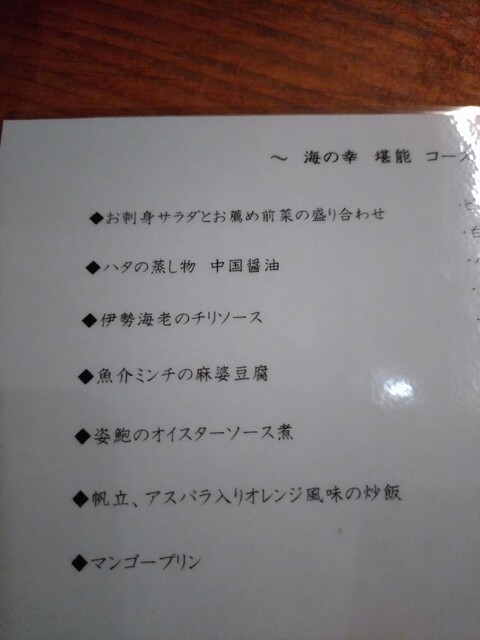 ～ 海の幸 堪能 コース
◆お刺身サラダとお薦め前菜の盛り合わせ
◆ハタの蒸し物 中国醤油
◆伊勢海老のチリソース
◆魚介ミンチの麻婆豆腐
◆姿鮑のオイスターソース煮
◆帆立、アスパラ入りオレンジ風味の炒飯
◆マンゴープリン